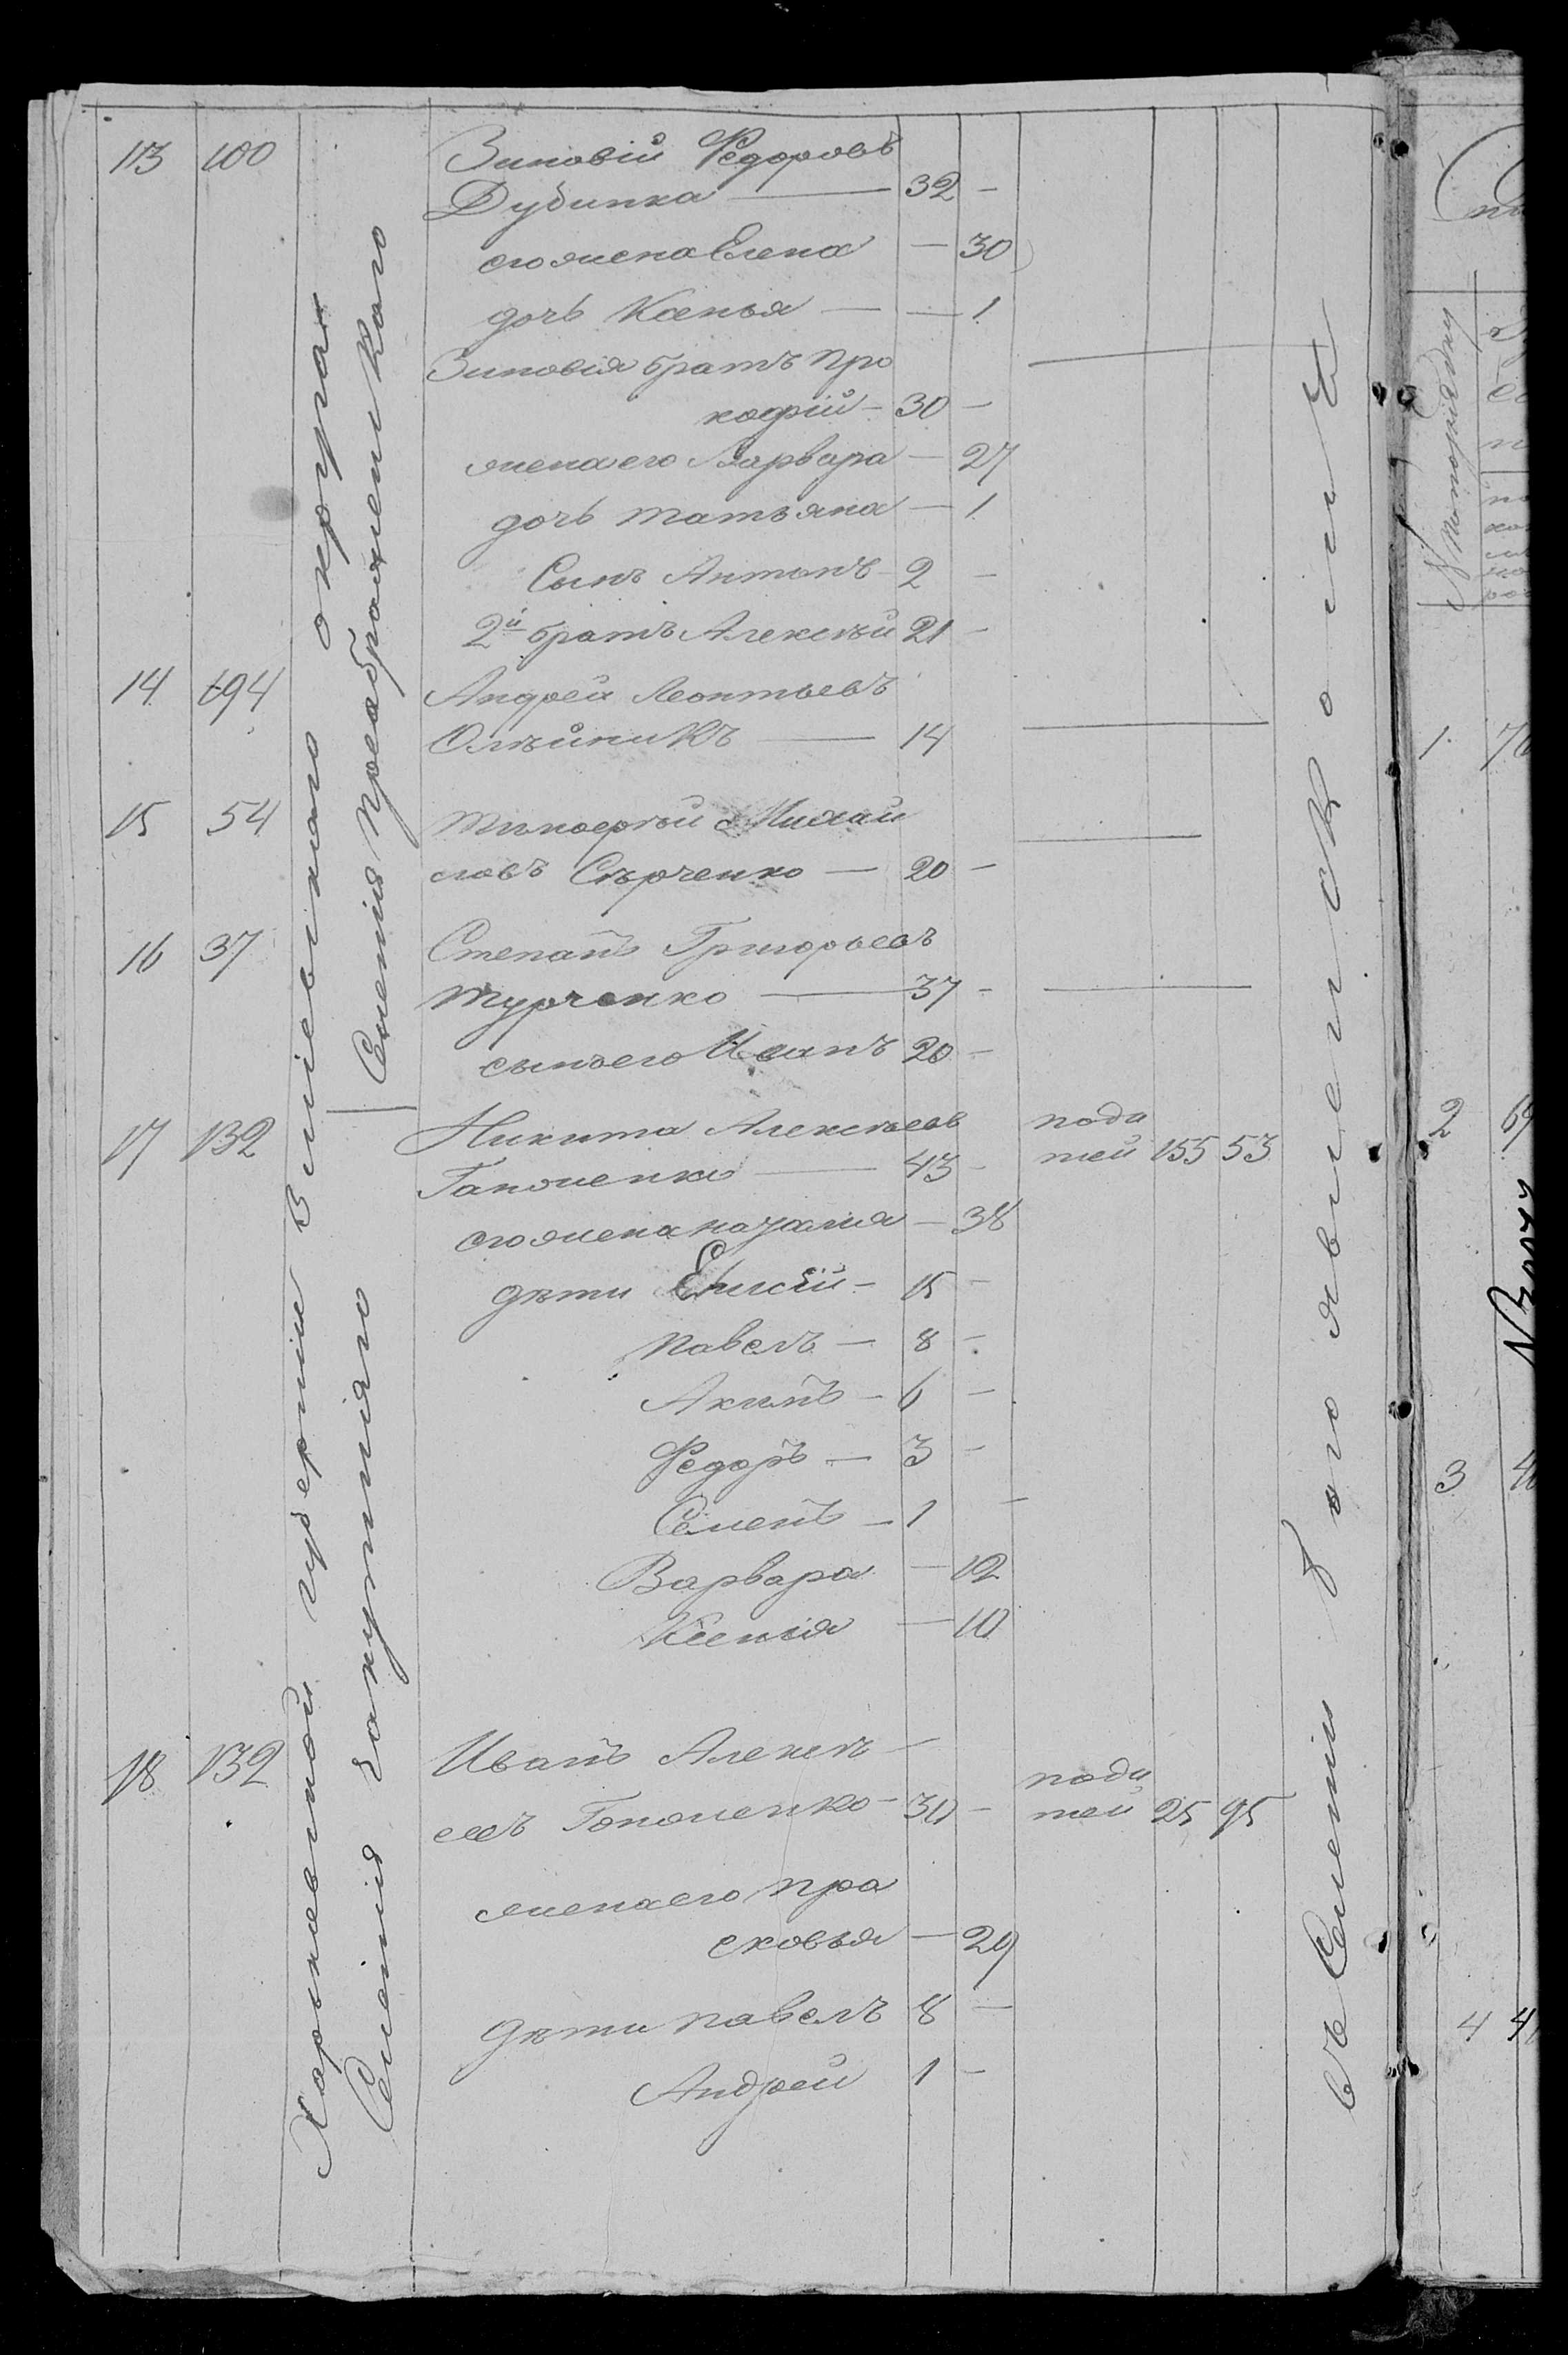 13 100 Зиновій Ѳедоровъ
Дубинка — 32 —
его жена Елена — 30
дочь Ксенья — — 1
Зиновія братъ Про
кофій — 30 —
жена его Варвара — 27
дочь Татьяна — 1
Сынъ Антонъ — 2 —
2й братъ Алексѣй 21 —
14 194 Андрей Леонтьевъ
Олѣйникъ — 14
15 54 Тимофѣй Михай
ловъ Сѣрченко — 20 —
16 37 Степанъ Григорьевъ
Турченко — 37 —
сынъ его Иванъ 20 —
17 132 Никита Алексѣевъ пода
Гапоненко — 43 — тей 155 53
его жена — 38
дѣти Елисѣй — 15 —
Павелъ — 8 —
Акимъ — 6 —
Ѳедоръ — 3 —
Семенъ — 1 —
Варвара — 12
Ксенія — 10
18 132 Иванъ Алексѣ — пода
евъ Гапоненко — 30 — тей 25 95
жена его Пра
сковья — 29
дѣти Павелъ 8 —
Андрей 1 —
Харьковской губерніи Зміевскаго округа
Селенія Закутняго
Селенія Преображенскаго
въ Селеніи
№ по порядку
1. 2 3 4